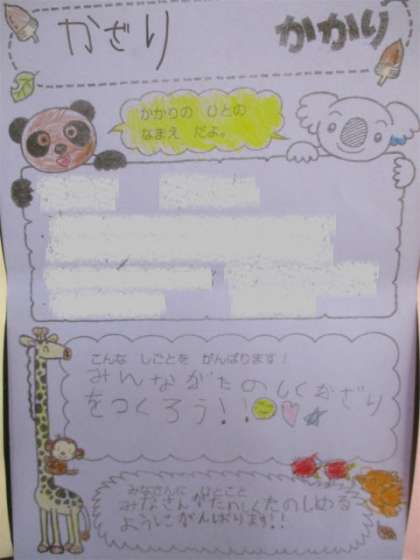 かざり かかり
かかりの ひとの
なまえ だよ。
こんな しごとを がんばります!
みんながたのしくかざり
をつくろう!!
みなさんに ひとこと
みなさんがたのしくたのしめる
ようにがんばります!!